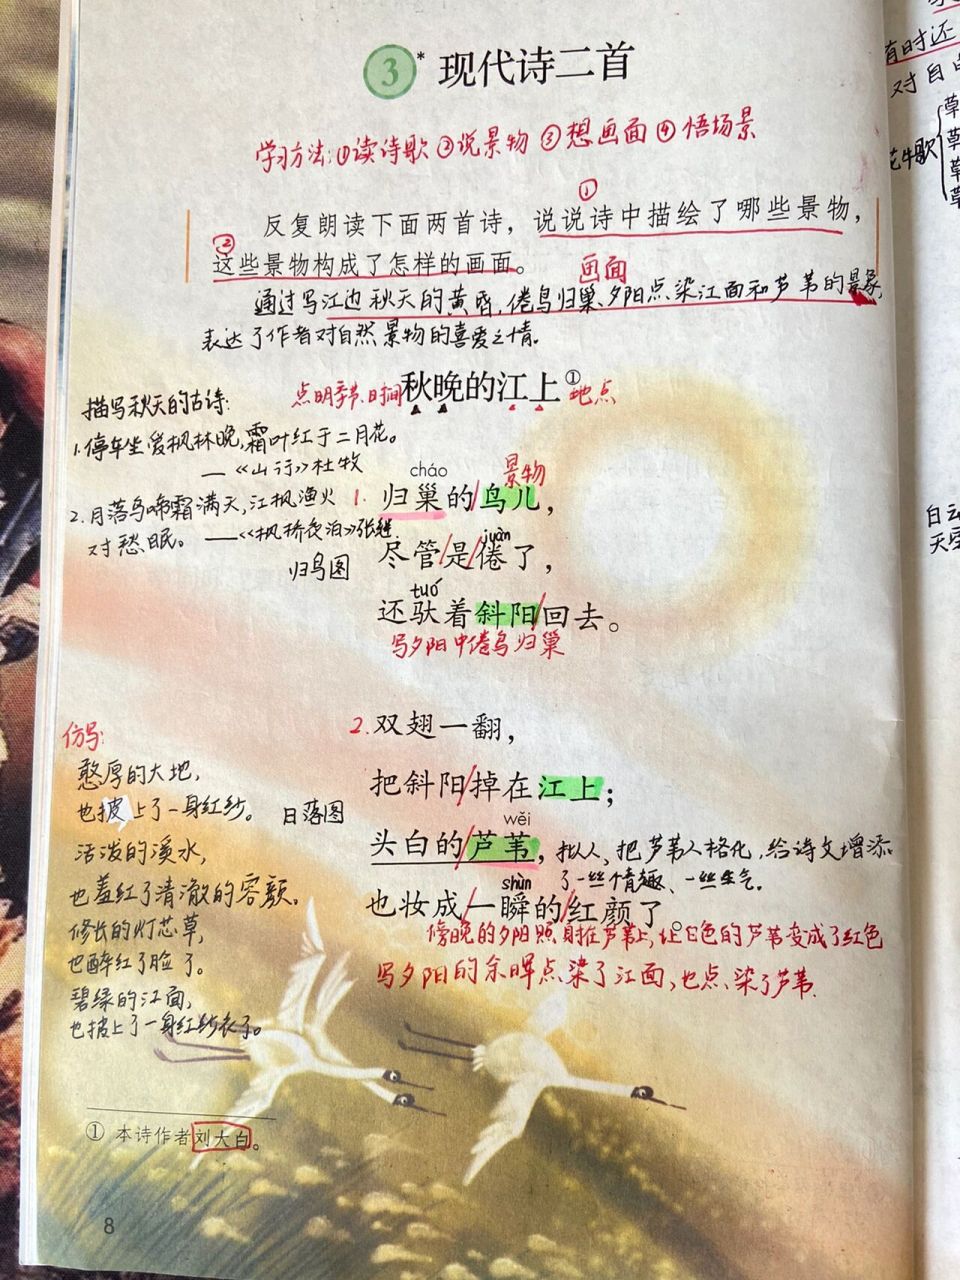 3* 现代诗二首
学习方法:①读诗歌②说景物③想画面④悟场景
①
反复朗读下面两首诗，说说诗中描绘了哪些景物，
②
这些景物构成了怎样的画面。 画面
通过写江边秋天的黄昏,倦鸟归巢、夕阳点染江面和芦苇的景象,
表达了作者对自然景物的喜爱之情。
点明季节、时间 秋晚的江上① 地点
描写秋天的古诗:
1.停车坐爱枫林晚,霜叶红于二月花。
——《山行》杜牧
2.月落乌啼霜满天,江枫渔火
对愁眠。——《枫桥夜泊》张继
归鸟图
cháo 景物
1. 归巢的/鸟儿，
juàn
尽管/是/倦了，
tuó
还驮着斜阳/回去。
写夕阳中倦鸟归巢
2.双翅一翻，
把斜阳/掉在江上；
wěi
头白的/芦苇，
拟人、把芦苇人格化,给诗文增添
了一丝情趣、一丝生气。
shùn
也妆成/一瞬的/红颜了。
傍晚的夕阳照射在芦苇上,让白色的芦苇变成了红色
写夕阳的余晖点染了江面,也点染了芦苇.
日落图
仿写:
憨厚的大地,
也披上了一身红纱。
活泼的溪水,
也羞红了清澈的容颜。
修长的灯芯草,
也醉红了脸了。
碧绿的江面,
也披上了一身红纱衣了。
① 本诗作者刘大白。
8
有时还
对自由
花牛歌
白云
天空